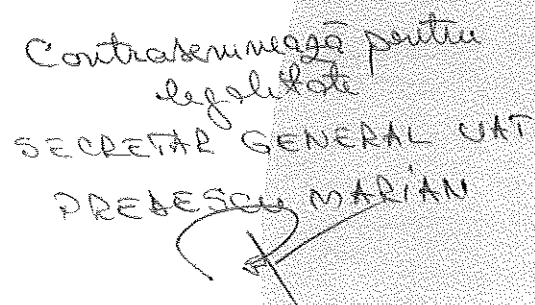 Contrasemnează pentru
legalitate
SECRETAR GENERAL UAT
PREDESCU MARIAN